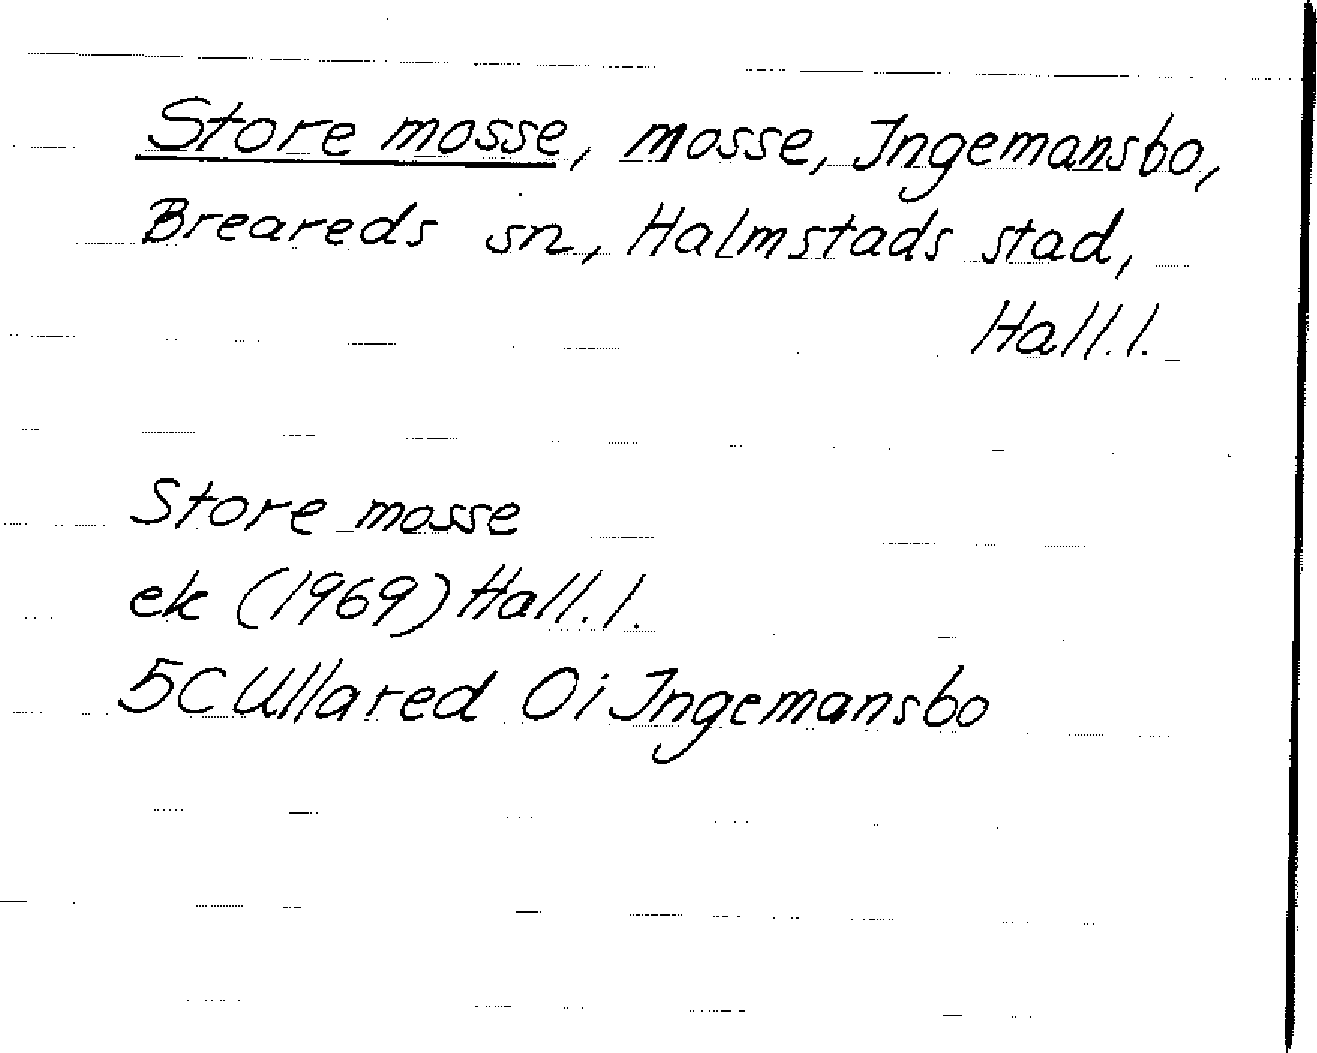 Store mosse, mosse, Ingemansbo,
Breareds sn, Halmstads stad,
Hall.l.
Store mosse
ek (1969) Hall.l.
5C Ullared 0i Ingemansbo